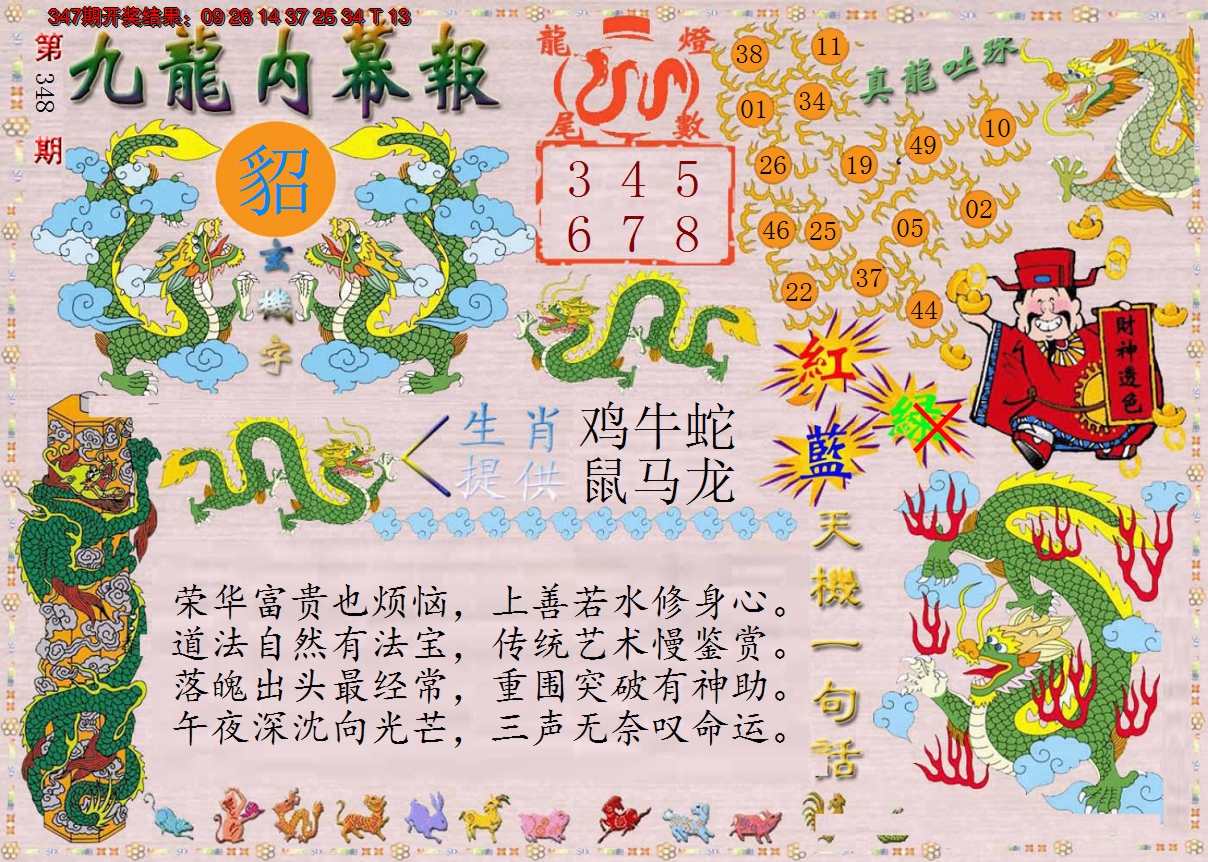 347期开奖结果：09 26 14 37 25 34 T 13
第348期
九龍内幕報
貂
玄機字
龍燈
尾數
3 4 5
6 7 8
真龍吐珠
38
11
01
34
10
49
26
19
02
46
25
05
37
22
44
財神透色
紅
綠
藍
生肖
提供
鸡牛蛇
鼠马龙
天機一句话
荣华富贵也烦恼，上善若水修身心。
道法自然有法宝，传统艺术慢鉴赏。
落魄出头最经常，重围突破有神助。
午夜深沈向光芒，三声无奈叹命运。